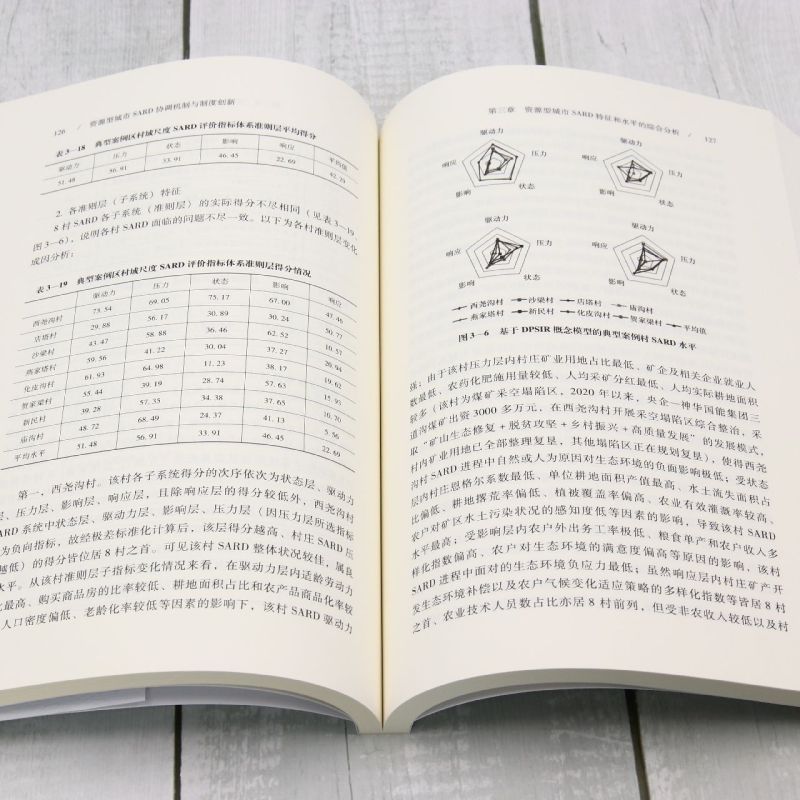 126 / 资源型城市 SARD 协调机制与制度创新
表 3—18 典型案例区村域尺度 SARD 评价指标体系准则层平均得分
驱动力 压力 状态 影响 响应 平均值
51.48 56.91 33.91 46.45 22.69 42.29
2. 各准则层（子系统）特征
8 村 SARD 各子系统（准则层）的实际得分不尽相同（见表 3—19
图 3—6），说明各村 SARD 面临的问题不尽一致。以下为各村准则层变化
成因分析：
表 3—19 典型案例区村域尺度 SARD 评价指标体系准则层得分情况
驱动力 压力 状态 影响 响应
西尧沟村 73.54 69.05 75.17 67.00 47.46
店塔村 29.88 56.17 30.89 30.24 50.77
沙梁村 58.88 36.46 62.52 10.57
燕家塔村 59.56 41.22 30.04 37.27 20.94
化皮沟村 64.98 11.23 38.17 19.62
贺家梁村 55.44 39.19 28.74 57.63 15.93
新民村 39.28 57.35 34.38 37.65 10.70
庙沟村 48.72 68.49 24.37 41.13 5.56
平均水平 51.48 56.91 33.91 46.45 22.69
第一，西尧沟村。该村各子系统得分的次序依次为状态层、驱动力
层、压力层、影响层、响应层，且除响应层的得分较低外，西尧沟村
SARD 系统中状态层、驱动力层、影响层、压力层（因压力层所选指标
为负向指标，故经极差标准化计算后，该层得分越高、村庄 SARD 压
越低）的得分皆位居 8 村之首。可见该村 SARD 整体状况较佳，属良
水平。从该村准则层子指标变化情况来看，在驱动力层内适龄劳动力
比最高、购买商品房的比率较低、耕地面积占比和农产品商品化率较
人口密度偏低、老龄化率较低等因素的影响下，该村 SARD 驱动力
第三章 资源型城市 SARD 特征和水平的综合分析 / 127
驱动力 压力 状态 影响 响应
驱动力 压力 状态 影响 响应
驱动力 压力 状态 影响 响应
驱动力 压力 状态 影响 响应
西尧沟村 沙梁村 店塔村 庙沟村
燕家塔村 新民村 化皮沟村 贺家梁村 平均值
图 3—6 基于 DPSIR 概念模型的典型案例村 SARD 水平
强；由于该村压力层内村庄矿业用地占比最低、矿企及相关企业就业人
数最低、农药化肥施用量较低、人均采矿分红最低、人均实际耕地面积
较多（该村为煤矿采空塌陷区，2020 年以来，央企—神华国能集团三
道沟煤矿出资 3000 多万元，在西尧沟村开展采空塌陷区综合整治，采
取“矿山生态修复 + 脱贫攻坚 + 乡村振兴 + 高质量发展”的发展模式，
村内矿业用地已全部整理复垦，其他塌陷区正在规划复垦），使得西尧
沟村 SARD 进程中自然或人为原因对生态环境的负面影响极低；受状态
层内村庄恩格尔系数最低、单位耕地面积产值最高、水土流失面积占
比偏低、耕地撂荒率偏低、植被覆盖率偏高、农业有效灌溉率较高、
农户对矿区水土污染状况的感知度低等因素的影响，导致该村 SARD
水平最高；受影响层内农户外出务工率极低、粮食单产和农户收入多
样化指数偏高、农户对生态环境的满意度偏高等原因的影响，该村
SARD 进程中面对的生态环境负应力最低；虽然响应层内村庄矿产开
发生态环境补偿以及农户气候变化适应策略的多样化指数等皆居 8 村
之首、农业技术人员数占比亦居 8 村前列，但受非农收入较低以及村